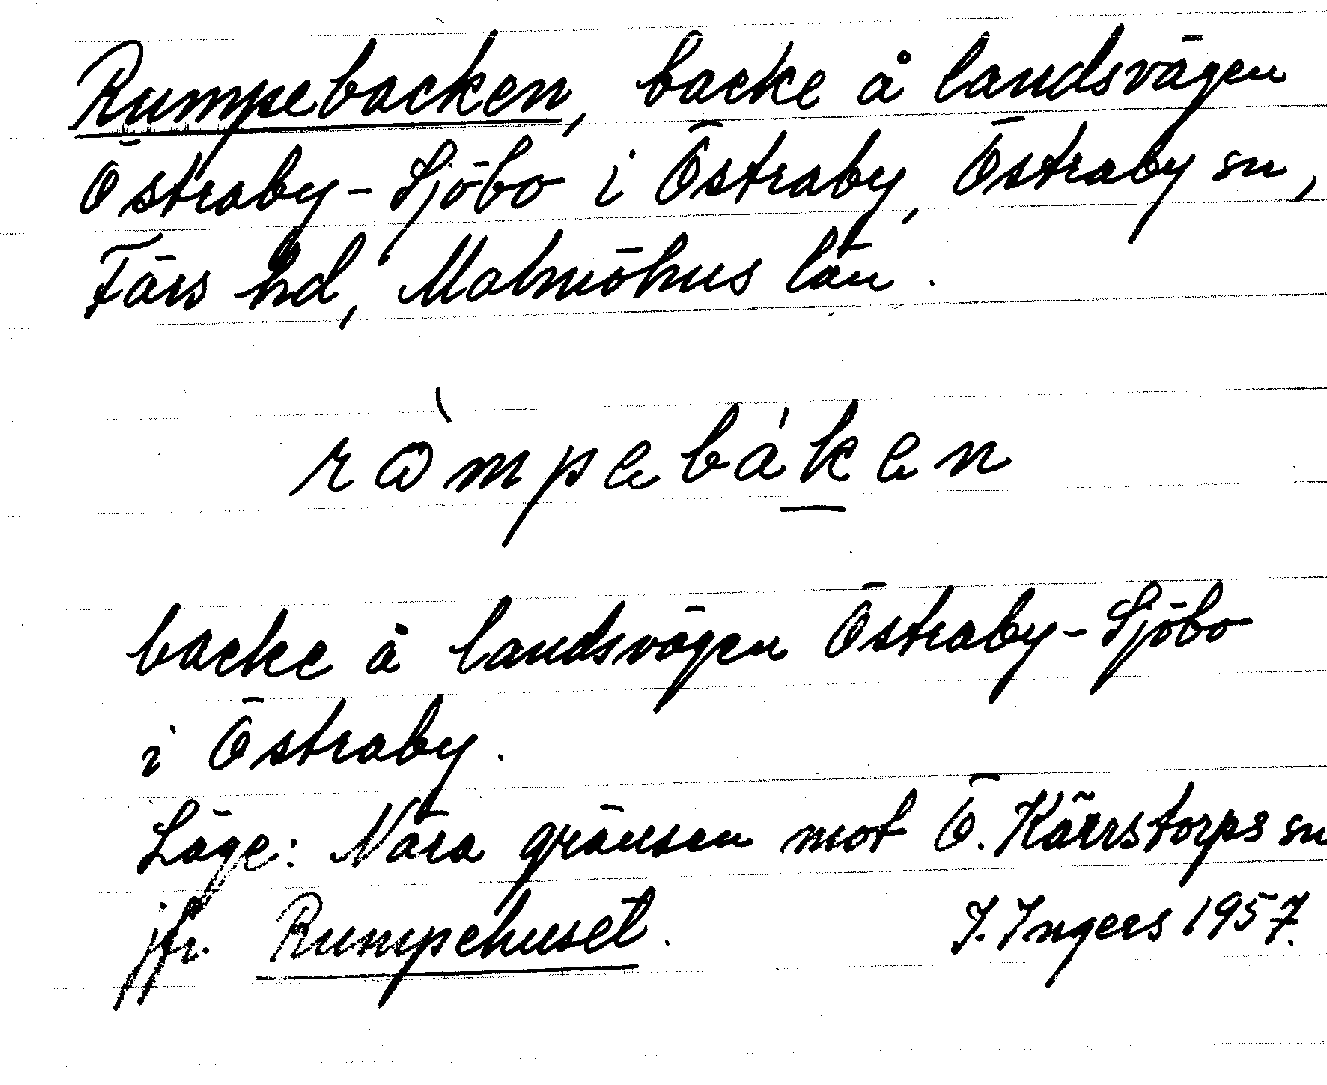 Rumpebacken, backe å landsvägen
Östraby-Sjöbo i Östraby, Östraby sn,
Färs hd, Malmöhus län.
ròmpebáken
backe å landsvägen Östraby-Sjöbo
i Östraby.
Läge: Nära gränsen mot Ö. Kärrstorps sn
jfr. Rumpehuset.
I. Ingers 1957.